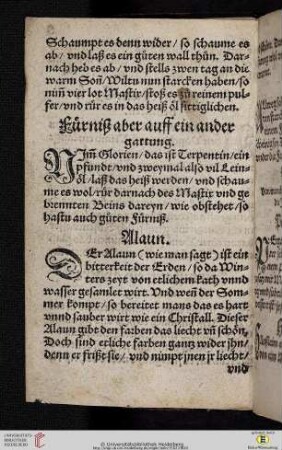 Schaumpt es denn wider / so schaume es
ab / vnd laß es ein gůten wall thůn. Dar-
nach heb es ab / vnd stells zwen tag an die
warm Son / Wiltu nun starcken haben / so
nim̃ vier lot Mastix / stoß es zů reinem pul-
fer / vnd rür es in das heiß öl sittiglichen.
Fürniß aber auff ein ander
gattung.
NJm̃ Glorien / das ist Terpentin / ein
pfundt / vnd zweymal also vil Lein-
öl / laß das heiß werden / vnd schau-
me es wol / rür darnach des Mastix vnd ge
brennten Beins dareyn / wie obstehet / so
hastu auch gůten Fürniß.
Alaun.
DEr Alaun (wie man sagt) ist ein
bitterkeit der Erden / so da Win-
ters zeyt von etlichem kath vnnd
wasser gesamlet wirt. Vnd weñ der Som-
mer kompt / so bereitet mans das es hart
vnnd sauber wirt wie ein Christall. Dieser
Alaun gibt den farben das liecht vñ schön.
Doch sind etliche farben gantz wider jhn /
denn er frißt sie / vnd nimpt jnen jr liecht /
vnd
UNIVERSITÄTS-
BIBLIOTHEK
HEIDELBERG
© Universitätsbibliothek Heidelberg